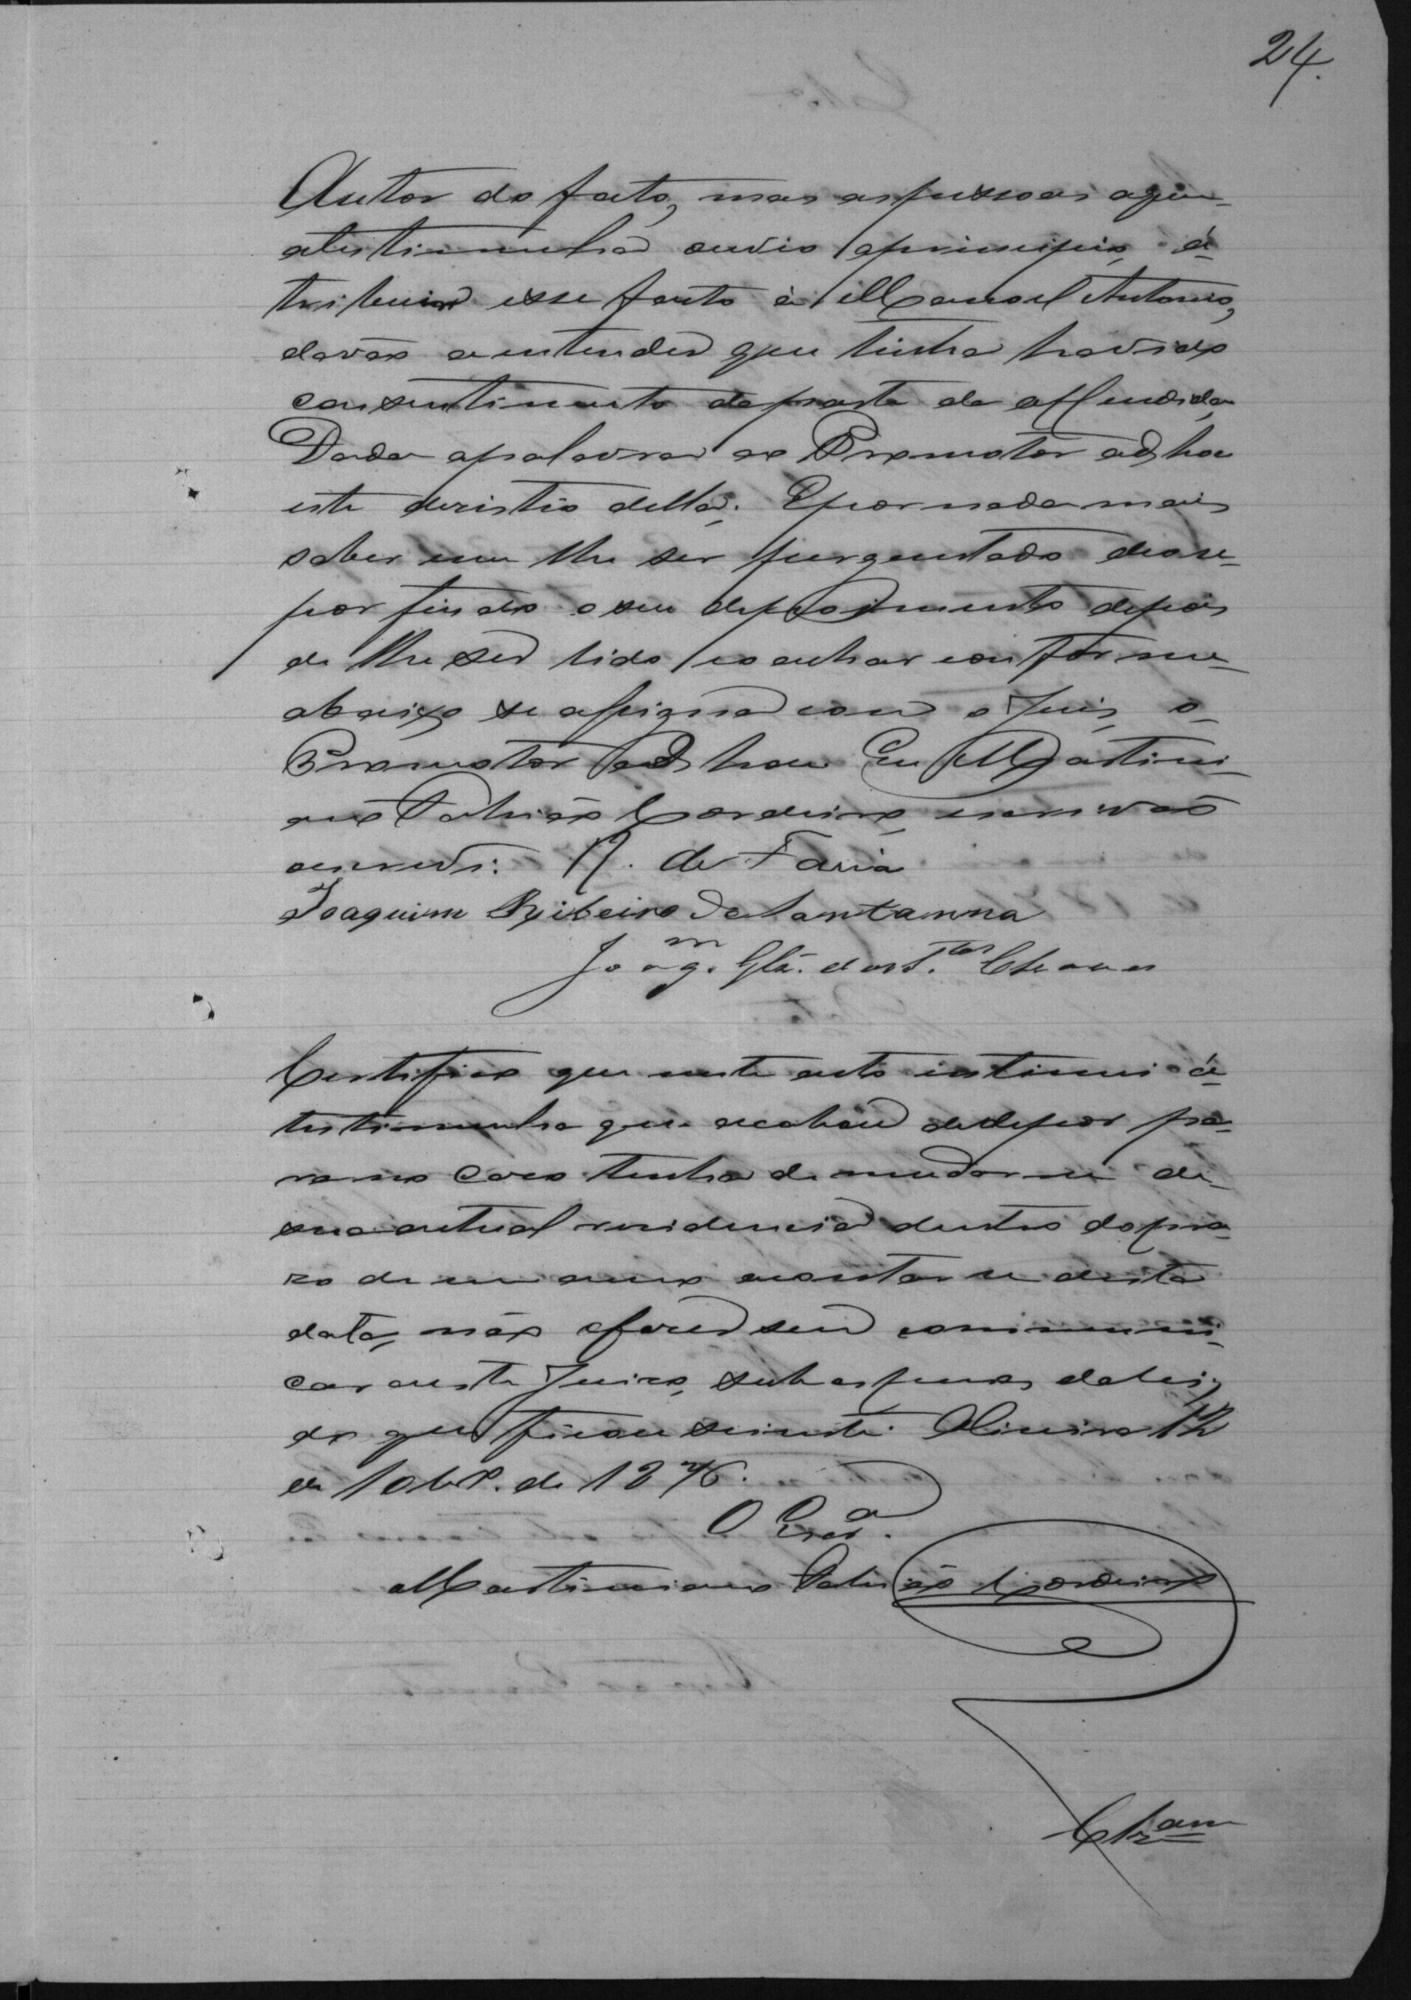 24.
Autor do facto, mas as pessoas a quem
a testimunha ouvio a principio á
tribuir esse facto á Manoel Antonio,
davão a entender que tinha havido
consentimento da parte da offendida,
Dada a palavra ao Promotor ad hoc
este desistio della. E por nada mais
saber nem lhe ser perguntado deu-se
por findo o seu depoimento depois
de lhe ser lido e o achar conforme
abaixo se assigna com o Juis, o
Promotor ad hoc Eu Martini
ano Patricio Cordeiro, escrivão
escrevi. R. de Faria
Joaquim Ribeiro de Santanna
Joaq.m Glz. dos S.tos Chaves
Certifico que neste acto intimei á
testimunha que acabou de depor pa-
ra no caso tenha de mudar-se de
sua actual residencia dentro do pra
zo de um anno a contar-se desta
data, não o faça sem communi-
car a este Juizo, sub as penas da lei,
do que ficou sciente. Oliveira 12
de 10br.o de 1876.
O Escr.am
Martiniano Patricio Cordeiro
Clz.am